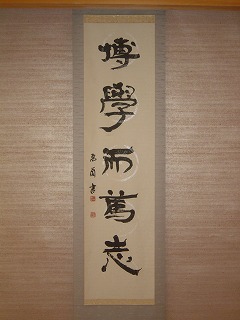 博學而篤志